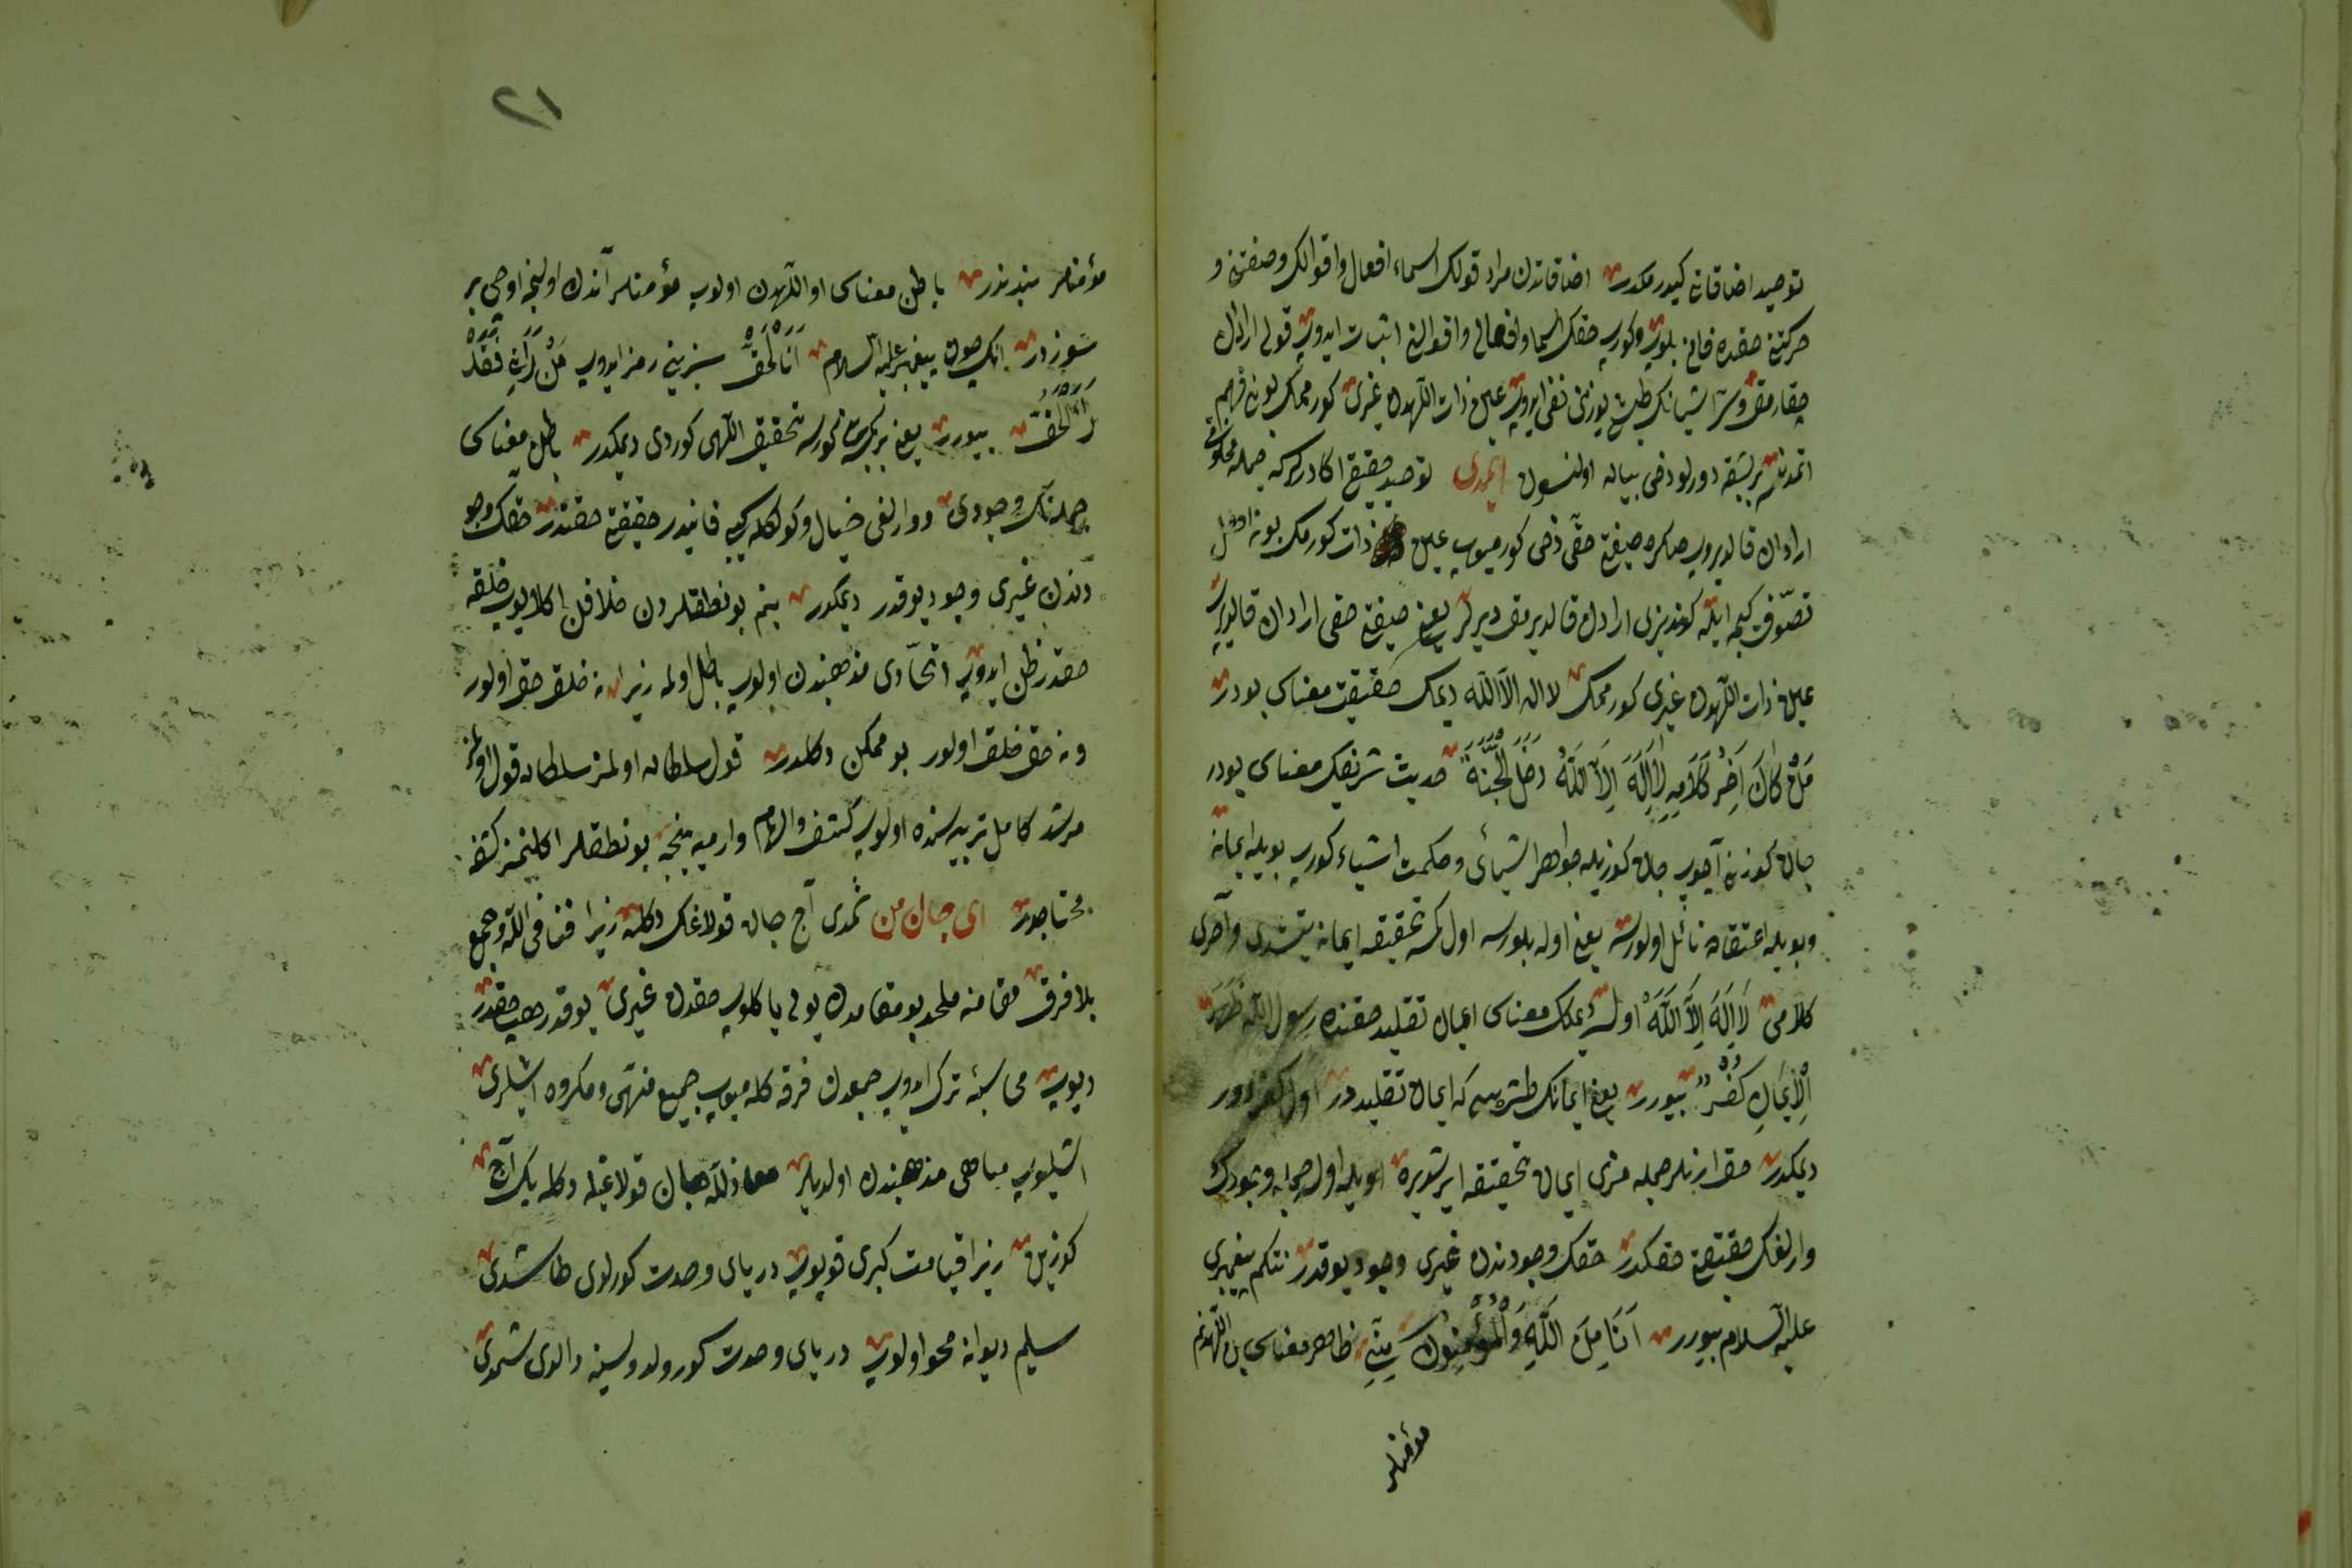 توحید اضافاتی کیدرمکدر اضافاتدن مراد قولک اسماء افعال و اقوالک و صفتن و
حرکتن حقده فانی بلوب و کورب حقک اسما و افعالی و اقوالن اثبات ایدوب قولی ارادن
چقارمق و شر اشیانک طیش یوزنی نفی ایدوب عین ذات اللهدن غیری کورممک بونی فهم
اتمدنسه بر بشقه دورلو دخی بیان اولنسون ایمدی توحید حقیقی اکا درلر که جمله مخلوقی
ارادان قالدیروب صکره صفت حقی دخی کورمیوب عین ذات کورمک بونه اهل
تصوف کیجه ایله کوندزی ارادن قالدیرمق دیرلر یعنی صفت حقی ارادان قالدیروب
عین ذات اللهدن غیری کورممک لا اله الا الله دیمک حقیقت معناسی بودر
مَنْ كَانَ آخِرُ كَلَامِهِ لَا اِلَهَ اِلَّا اللَّهُ دَخَلَ الْجَنَّةَ حدیث شریفک معناسی بودر
جان کوزن آچوب جان کوزیله جواهر اشیائی و حکمت اشیاء کورب بویله ایمانه
و بویله اعتقاده نائل اولورسه یعنی اوله بلورسه اول کمسه تحقیقه ایمانه یتشدی و آخری
کلامی لَا اِلَهَ اِلَّا اللَّهْ اولسه دیمک معناسی ایمان تقلید حقنده رسول الله ظَهَرَ
اْلاِيمَانِ كُفْرٌ بیورر یعنی ایمانک طشره سی که ایمان تقلیددر اول کفردور
دیمکدر حق ارنلر جمله مزی ایمان تحقیقه ایرشدیره اویله اولیجه و بو وجودک
وارلغک حقیقتی حقکدر حقک وجودندن غیری وجود یوقدر نتکم پیغمبری
علیه السلام بیورر اَنَا مِنَ اللَّهِ وَالْمُؤْمِنُونَ مِنِّي ظاهر معناسی بن اللهدنم
مؤمنلر
٢١
مؤمنلر بندندر باطن معناسی او اللهدن اولوب مؤمنلر آندن اولنجه اوچی بر
سوزدر انکچون پیغمبر علیه السلام اَنَا الْحَقّْ سزینی رمز ایدوب مَنْ رَآنِي فَقَدْ
رَاَ الْحَقّْ بیورر یعنی بر کمسه بنی کورسه تحقیق اللهی کوردی دیمکدر باطن معناسی
جمله نک وجودی و وارلغی خیال و کولکه کبی فانیدر حقیقتی حقندر حقک وجو
دندن غیری وجود یوقدر دیمکدر بنم بو نطقلردن خلافن اکلایوب خلقه
حقدر ظن ایدوب اتحادی مذهبندن اولوب باطل اولمه زیرا نه خلق حق اولور
و نه حق خلق اولور بو ممکن دکلدر قول سلطان اولمز سلطان قول اولمز
مرشد کامل تربیه سنده اولوب کشف و الهام وارمیه ینجه بو نطقلر اکلنمز کشفه
محتاجدر ای جان من شمدی آچ جان قولاغک دکله زیرا فنا فی الله و جمع
بلا فرق مقامنه ملحد بو مقامدن یولی یاکلوب حقدن غیری یوقدر هپ حقدر
دیوب محاسبه ترک ایدوب جمعدن فرقه کلمیوب جمیع منهی و مکروه اشلری
اشلیوب مباحی مذهبندن اولدیلر معاذ الله جان قولاغیله دکله یک آچ
کوزین زیرا قیامت کبری قوپوب دریای وحدت کورلدی طاشدی
سلیم دیوانه محو اولوب دریای وحدت کورولد ولسنه دالدی شمدی